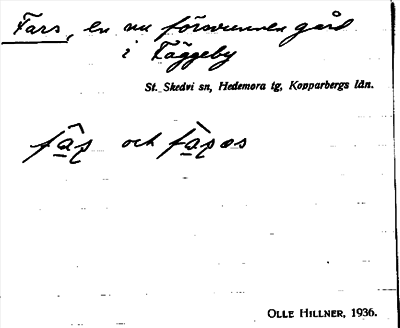 Fars, en nu försvunnen gård
i Fäggeby
St. Skedvi sn, Hedemora tg, Kopparbergs län.
och
OLLE HILLNER, 1936.